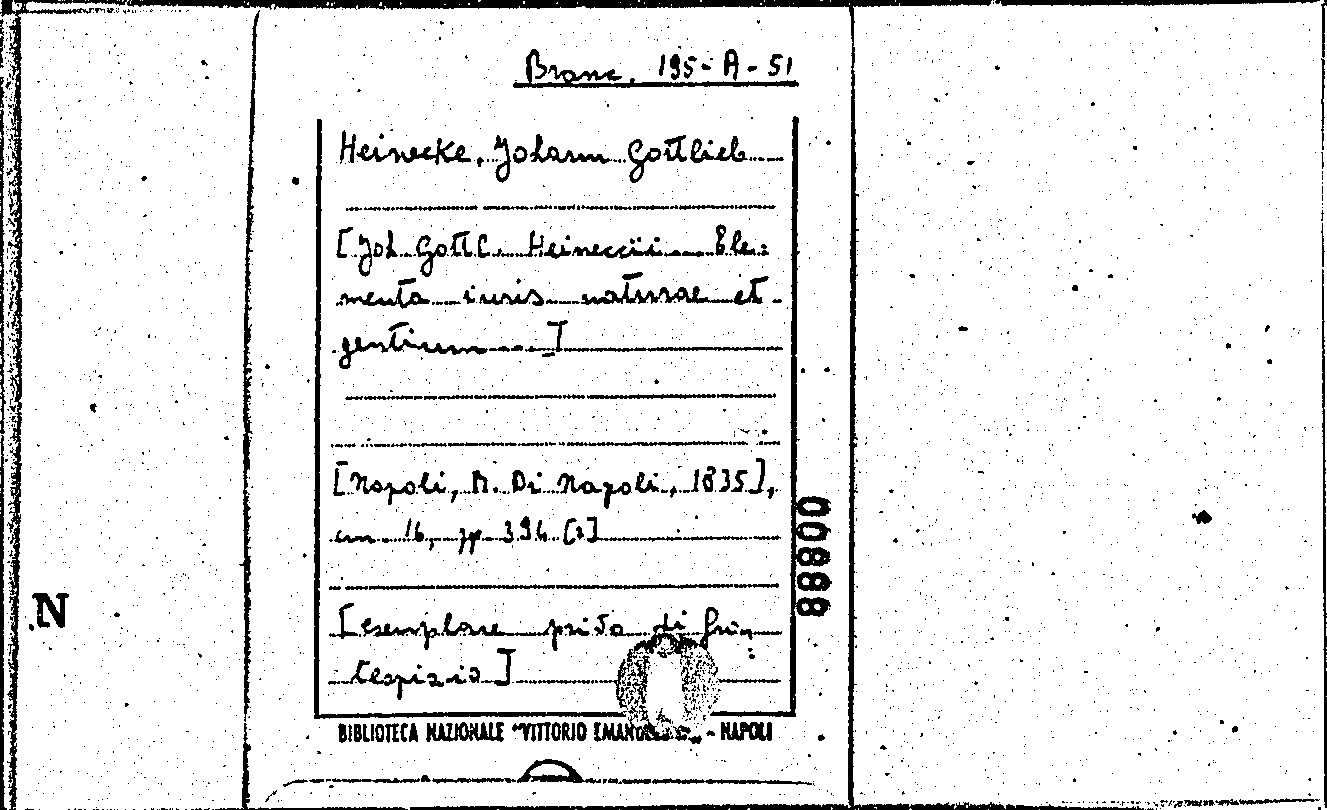 Branc. 195-A-51
Heinecke, Johann Gottlieb
[Joh. Gottl. Heineccii ... Ele=
menta iuris naturae et
gentium ...]
[Napoli, M. Di Napoli, 1835],
cm. 16, pp. 394 [2]
[esemplare privo di fron=
tespizio]
BIBLIOTECA NAZIONALE "VITTORIO EMANUELE III" - NAPOLI
00888
N